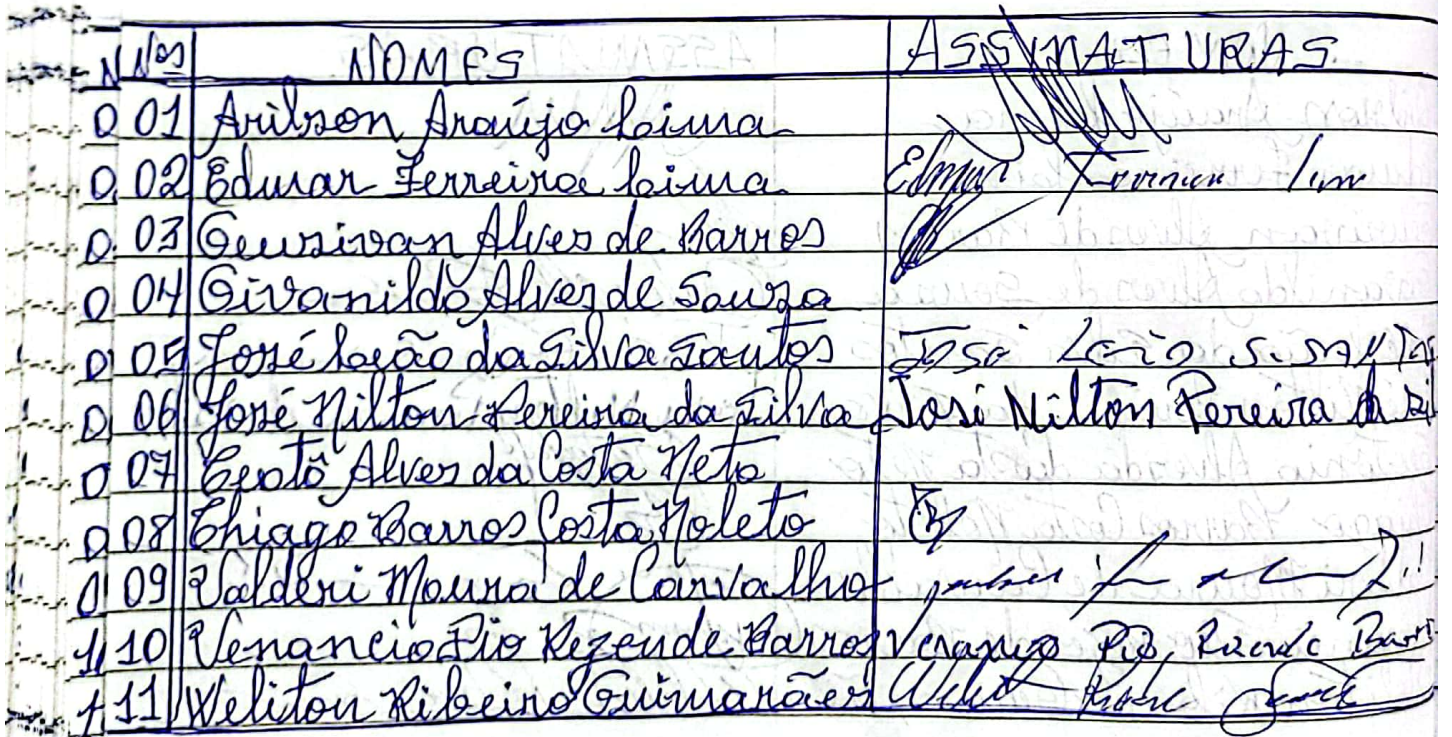 N Nos NOMES ASSINATURAS
0 01 Arilson Araújo Lima
0 02 Edmar Ferreira Lima Edmar Ferreira Lima
0 03 Geusivan Alves de Barros
0 04 Givanildo Alves de Souza
0 05 José Leão da Silva Santos José Leão S. Santos
0 06 José Nilton Pereira da Silva José Nilton Pereira da Sil
0 07 Alves da Costa Neto
0 08 Thiago Barros Costa Noleto
0 09 Valderi Moura de Carvalho
1 10 Venancio Pio Rezende Barros Venancio Pio Rezende Barros
1 11 Weliton Ribeiro Guimarães